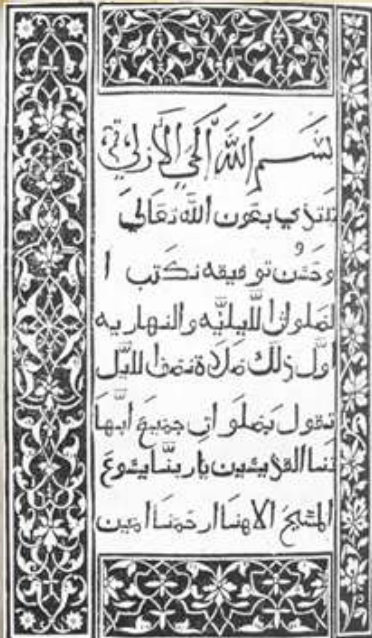 بسم الله الحي الازلي
نبتدي بعون الله تعالى
وحسن توفيقه نكتب ا
لصلوات الليليه والنهاريه
اول ذلك صلاة نصف الليل
تقول بصلوات جميع ابها
تنا القديسين ياربنا يسوع
المسيح الاهنا ارحمنا امين